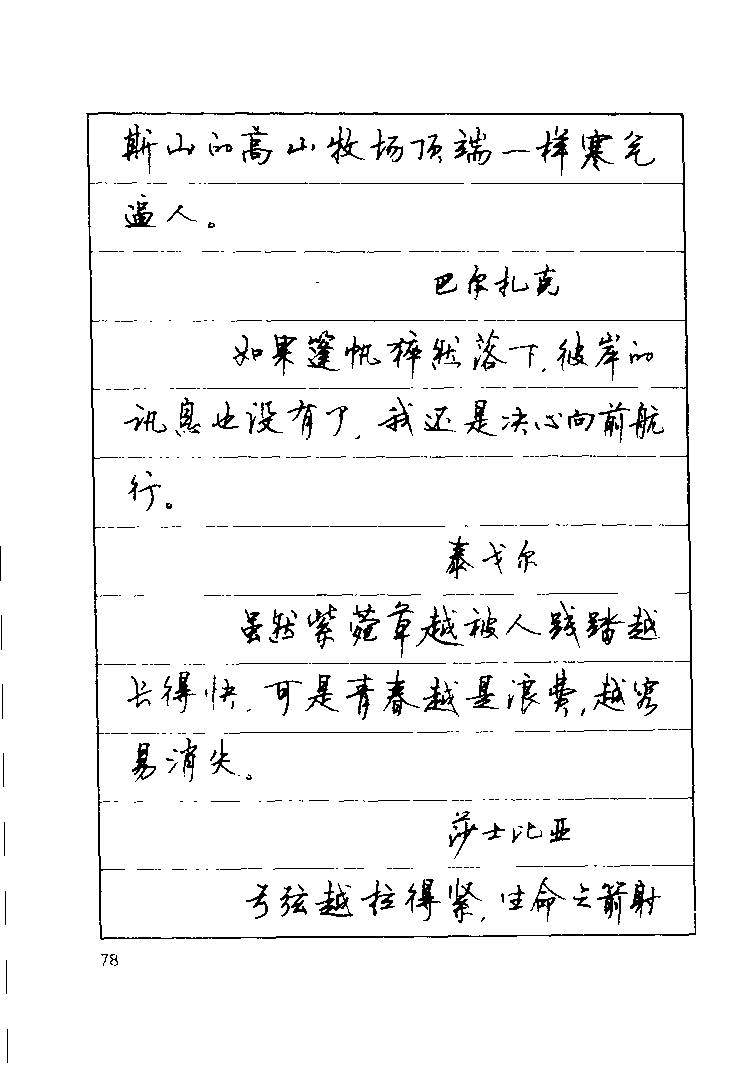 斯山的高山牧场顶端一样寒气
逼人。
巴尔扎克
如果篷帆猝然落下,彼岸的
讯息也没有了,我还是决心向前航
行。
泰戈尔
虽然紫菀草越被人践踏越
长得快,可是青春越是浪费,越容
易消失。
莎士比亚
弓弦越拉得紧,生命之箭射
78